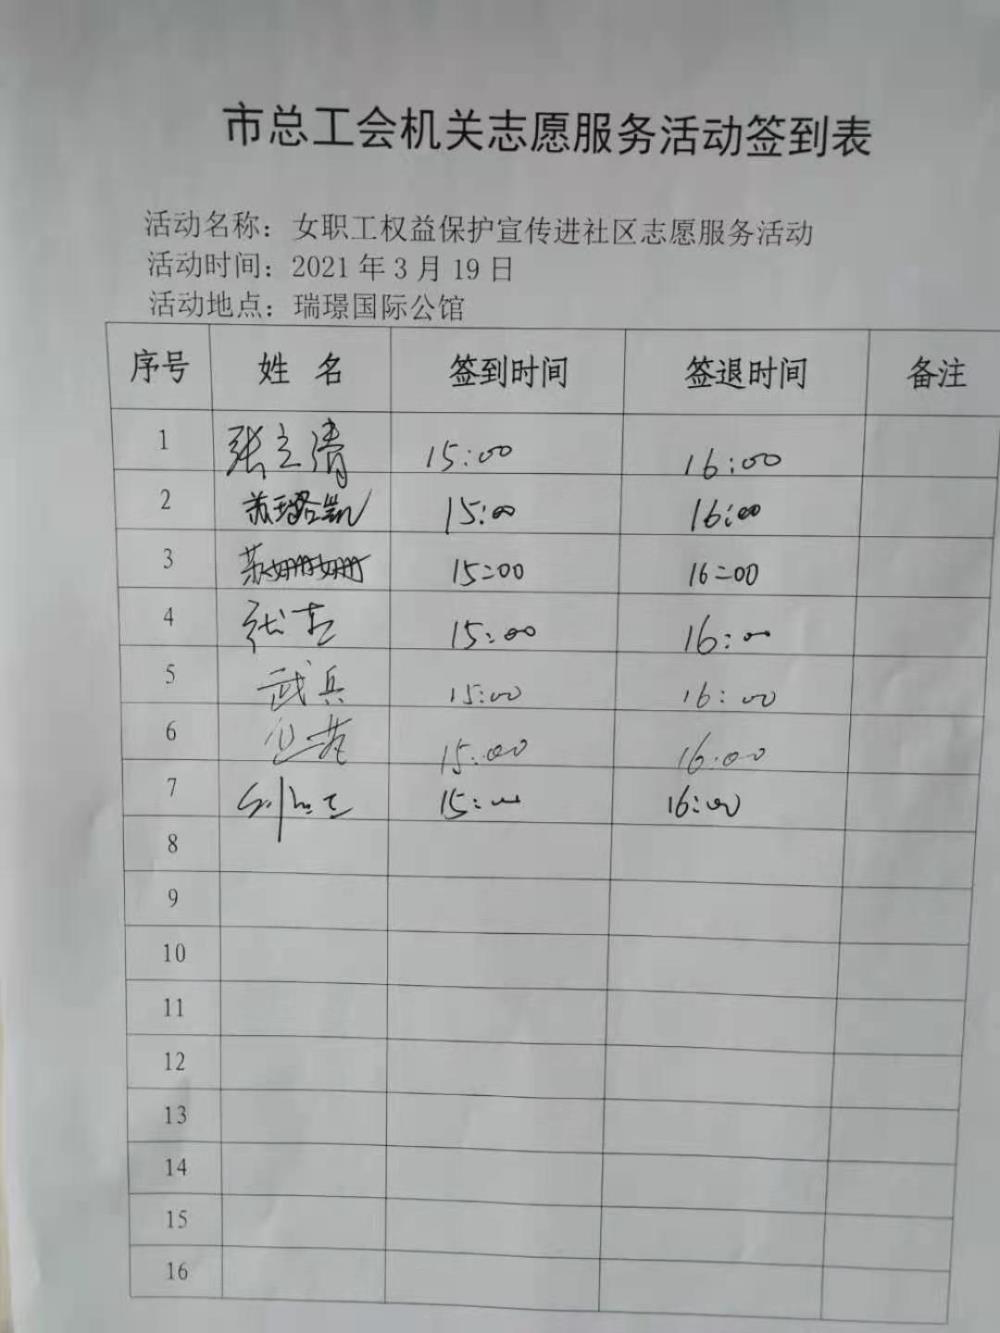 市总工会机关志愿服务活动签到表
活动名称：女职工权益保护宣传进社区志愿服务活动
活动时间：2021 年 3 月 19 日
活动地点：瑞璟国际公馆
序号 姓 名 签到时间 签退时间 备注
1 张立清 15:00 16:00
2 苏璐凯 15:00 16:00
3 苏姗姗 15:00 16:00
4 15:00 16:00
5 武兵 15:00 16:00
6 15:00 16:00
7 15:00 16:00
8
9
10
11
12
13
14
15
16